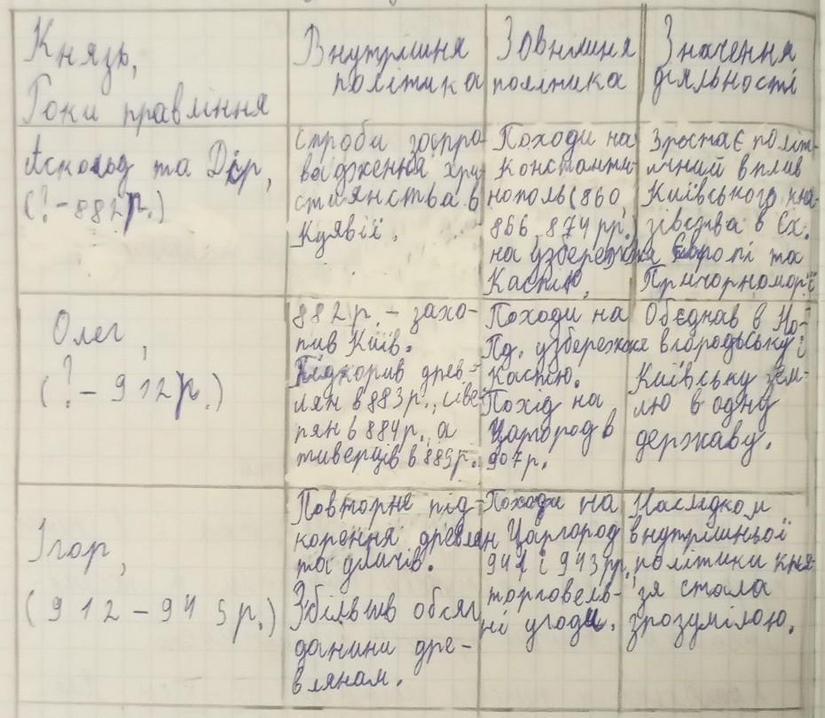 Князь,
Роки правління
Внутрішня
політика
Зовнішня
політика
Значення
діяльності
Аскольд та Дір,
(?-882р.)
Спроби запро
вадження хри
стиянства в
Куявії.
Походи на
Константи-
нополь(860,
866, 874рр.)
на узбережжя
Каспію,
Зростає політ-
ичний вплив
Київського кня
зівства в Сх.
Європі та
Причорномор'ї
Олег,
(?-912р.)
882р. - захо-
пив Київ.
Підкорив древ-
лян в 883р., сіве-
рян в 884р., а
тиверців в 885р.
Походи на
Пд. узбережжя
Каспію.
Похід на
Царгород в
907р.
Обєднав в Но-
вгородську і
Київську зем-
лю в одну
державу.
Ігор,
(912-945р.)
Повторне під-
корення древлян
та уличів.
Збільшив обсяг
данини дре-
влянам.
Походи на
Царгород
941 і 943рр,
торговель-
ні угоди.
Наслідком
внутрішньої
політики кня-
'зя стала
зрозумілою.